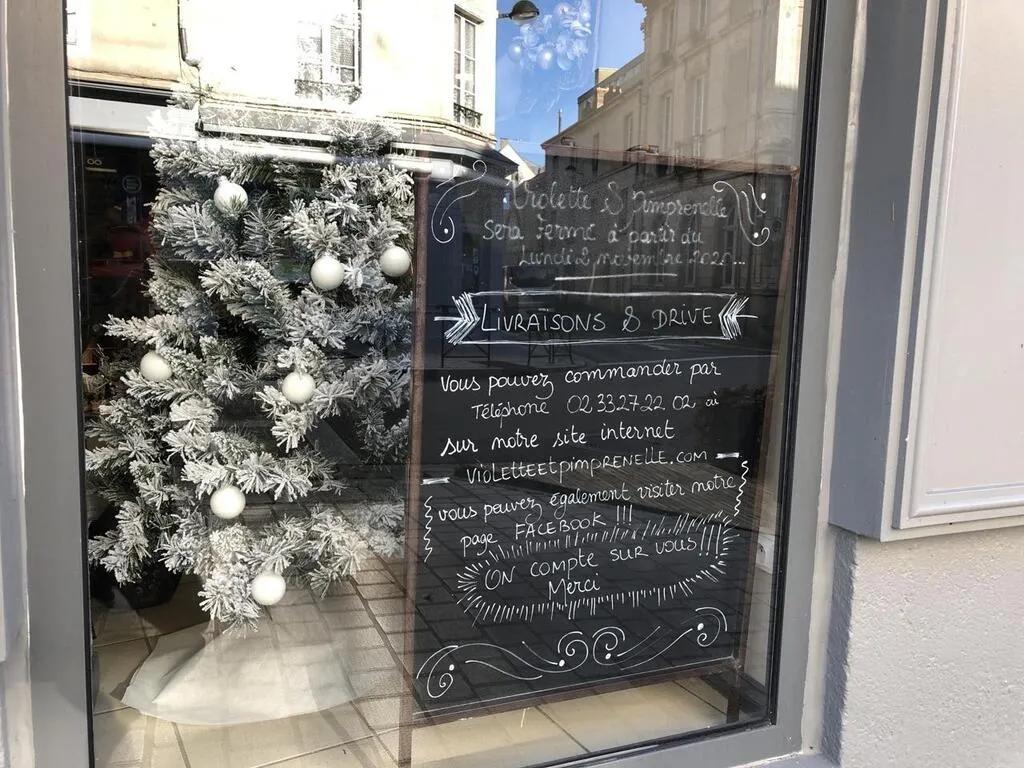 Violette & Pimprenelle
Sera Fermé à partir du
Lundi 2 novembre 2020...
LIVRAISONS & DRIVE
Vous pouvez commander par
Téléphone 02 33 27 22 02 où
sur notre site internet
VIOLETTEETPIMPRENELLE.COM
vous pouvez également visiter notre
page FACEBOOK !!!
ON COMPTE SUR VOUS !!!!
Merci